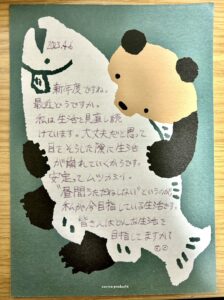 2023.4.6
新年度ですね。
最近どうですか。
私は生活を見直し続
けています。大丈夫だと思って
目をそらした隙に生活
が崩れていくからです。
安定ってムツカシイ。
"昼間うたたねしない"というのが
私が今目指している生活です。
皆さんはどんな生活を
目指してますか?